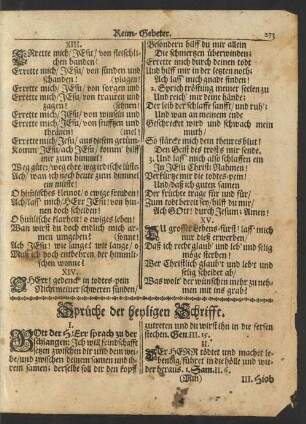 Reim-Gebeter. 273
XIII.
ERrette mich/ JEsu/ von fleischli-
chen banden!
Errette mich/ JEsu/ von sünden und
schanden! (plagen!
Errette mich/ JEsu/ von sorgen und
Errette mich/ JEsu/ von trauren und
zagen! (sehnen!
Errette mich/ JEsu/ von winseln und
Errette mich/ JEsu/ von seuffzen und
thränen! (mel!
Errette mich/ Jesu/ aus diesem getüm-
Komm JEsu/ach JEsu/ komm' hilff
mir zum himmel!
Weg güter/ weg ehre/ weg irdische lüste!
Ach/ was ich noch heute zum himmel
ein müste!
O himlisches kennt/ o ewige freuden!
Ach/ laß' mich/ HErr JEsu/ von hin-
nen doch scheiden!
O himlische klarheit! o ewiges leben!
Wan wirst du doch endlich mich ar-
men umgeben! (somme!
Ach JEsu! wie lange! wie lange! o
Muß ich doch entbehren der himmli-
schen wonne!
XIV.
O HErr! gedenck' in todes-pein
Nicht meiner schweren sünden/
Besondern hilff du mir allein
Die schmertzen überwinden:
Errette mich durch deinen todt
Und hilff mir in der letzten noth:
Ach laß' mich gnade finden!
2. Sprich tröstung meiner seelen zu
Und reich' mir deine hände:
Der leib der schlaffe sanfft/ und ruh'!
Und wan an meinem ende
Gehör verlischt wird und schwach mein
muth/
So stärcke mich dein theures blut!
Den Geist bis trost mir sende.
3. Und laß' mich also schlaffen ein
In JEsu Christi Nahmen:
Verkürtze mir die todes-pein/
Und daß ich guten samen
Der früchte trage für und für/
Zum todt bereit sey/ hilff du mir/
Ach GOtt! durch Jesum: Amen!
XV.
DU grosser Lebens-fürst! laß' mich
nur dies erwerben/
Daß ich recht glaub' und leb' und selig
möge sterben!
Wer Christlich glaubt und lebt und
selig scheidet ab/
Was wolt' der wünschen mehr zu neh-
men mit ins grab?
Sprüche der heyligen Schrifft.
I.
GOtt der HErr sprach zu der
Schlangen: Ich will feindschafft
setzen zwischen dir und dem wei-
be/ und zwischen deinem samen und ih-
rem samen: derselbe soll dir den kopff
zutreten und du wirst ihn in die fersen
stechen. Gen. III. 15.
II.
DEr HERR tödtet und machet le-
bendig/ führet in die hölle und wie-
der heraus. 1. Sam. II. 6.
(Mm) III. Hiob